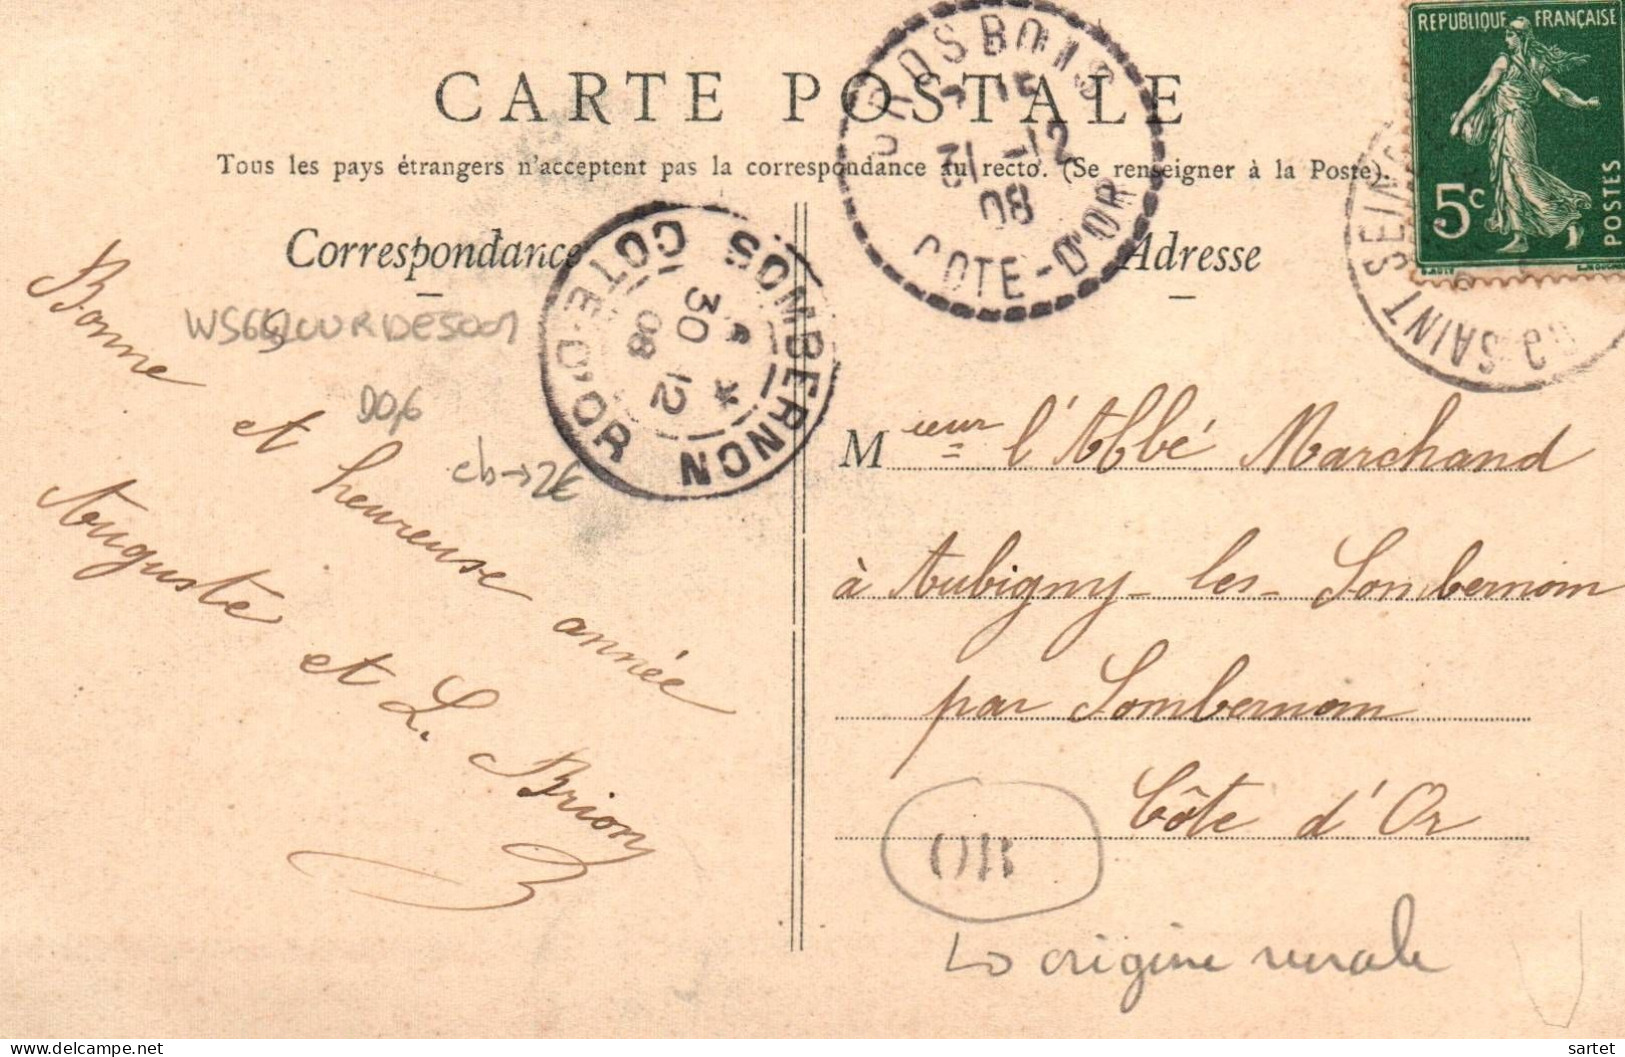 CARTE POSTALE
Tous les pays étrangers n'acceptent pas la correspondance au recto. (Se renseigner à la Poste).
Correspondance
Adresse
REPUBLIQUE FRANÇAISE
5c
POSTES
GROSBOIS
31 -12
08
COTE-D'OR
SOMBERNON
30 12
08
COTE-D'OR
SAINT SEINE
Bonne et heureuse année
Auguste et L. Brion
DO,6
cb → 2€
Mieur l'Abbé Marchand
à Aubigny-les-Sombernom
par Sombernom
Côte d'Or
OR
↳ origine rurale
sartet